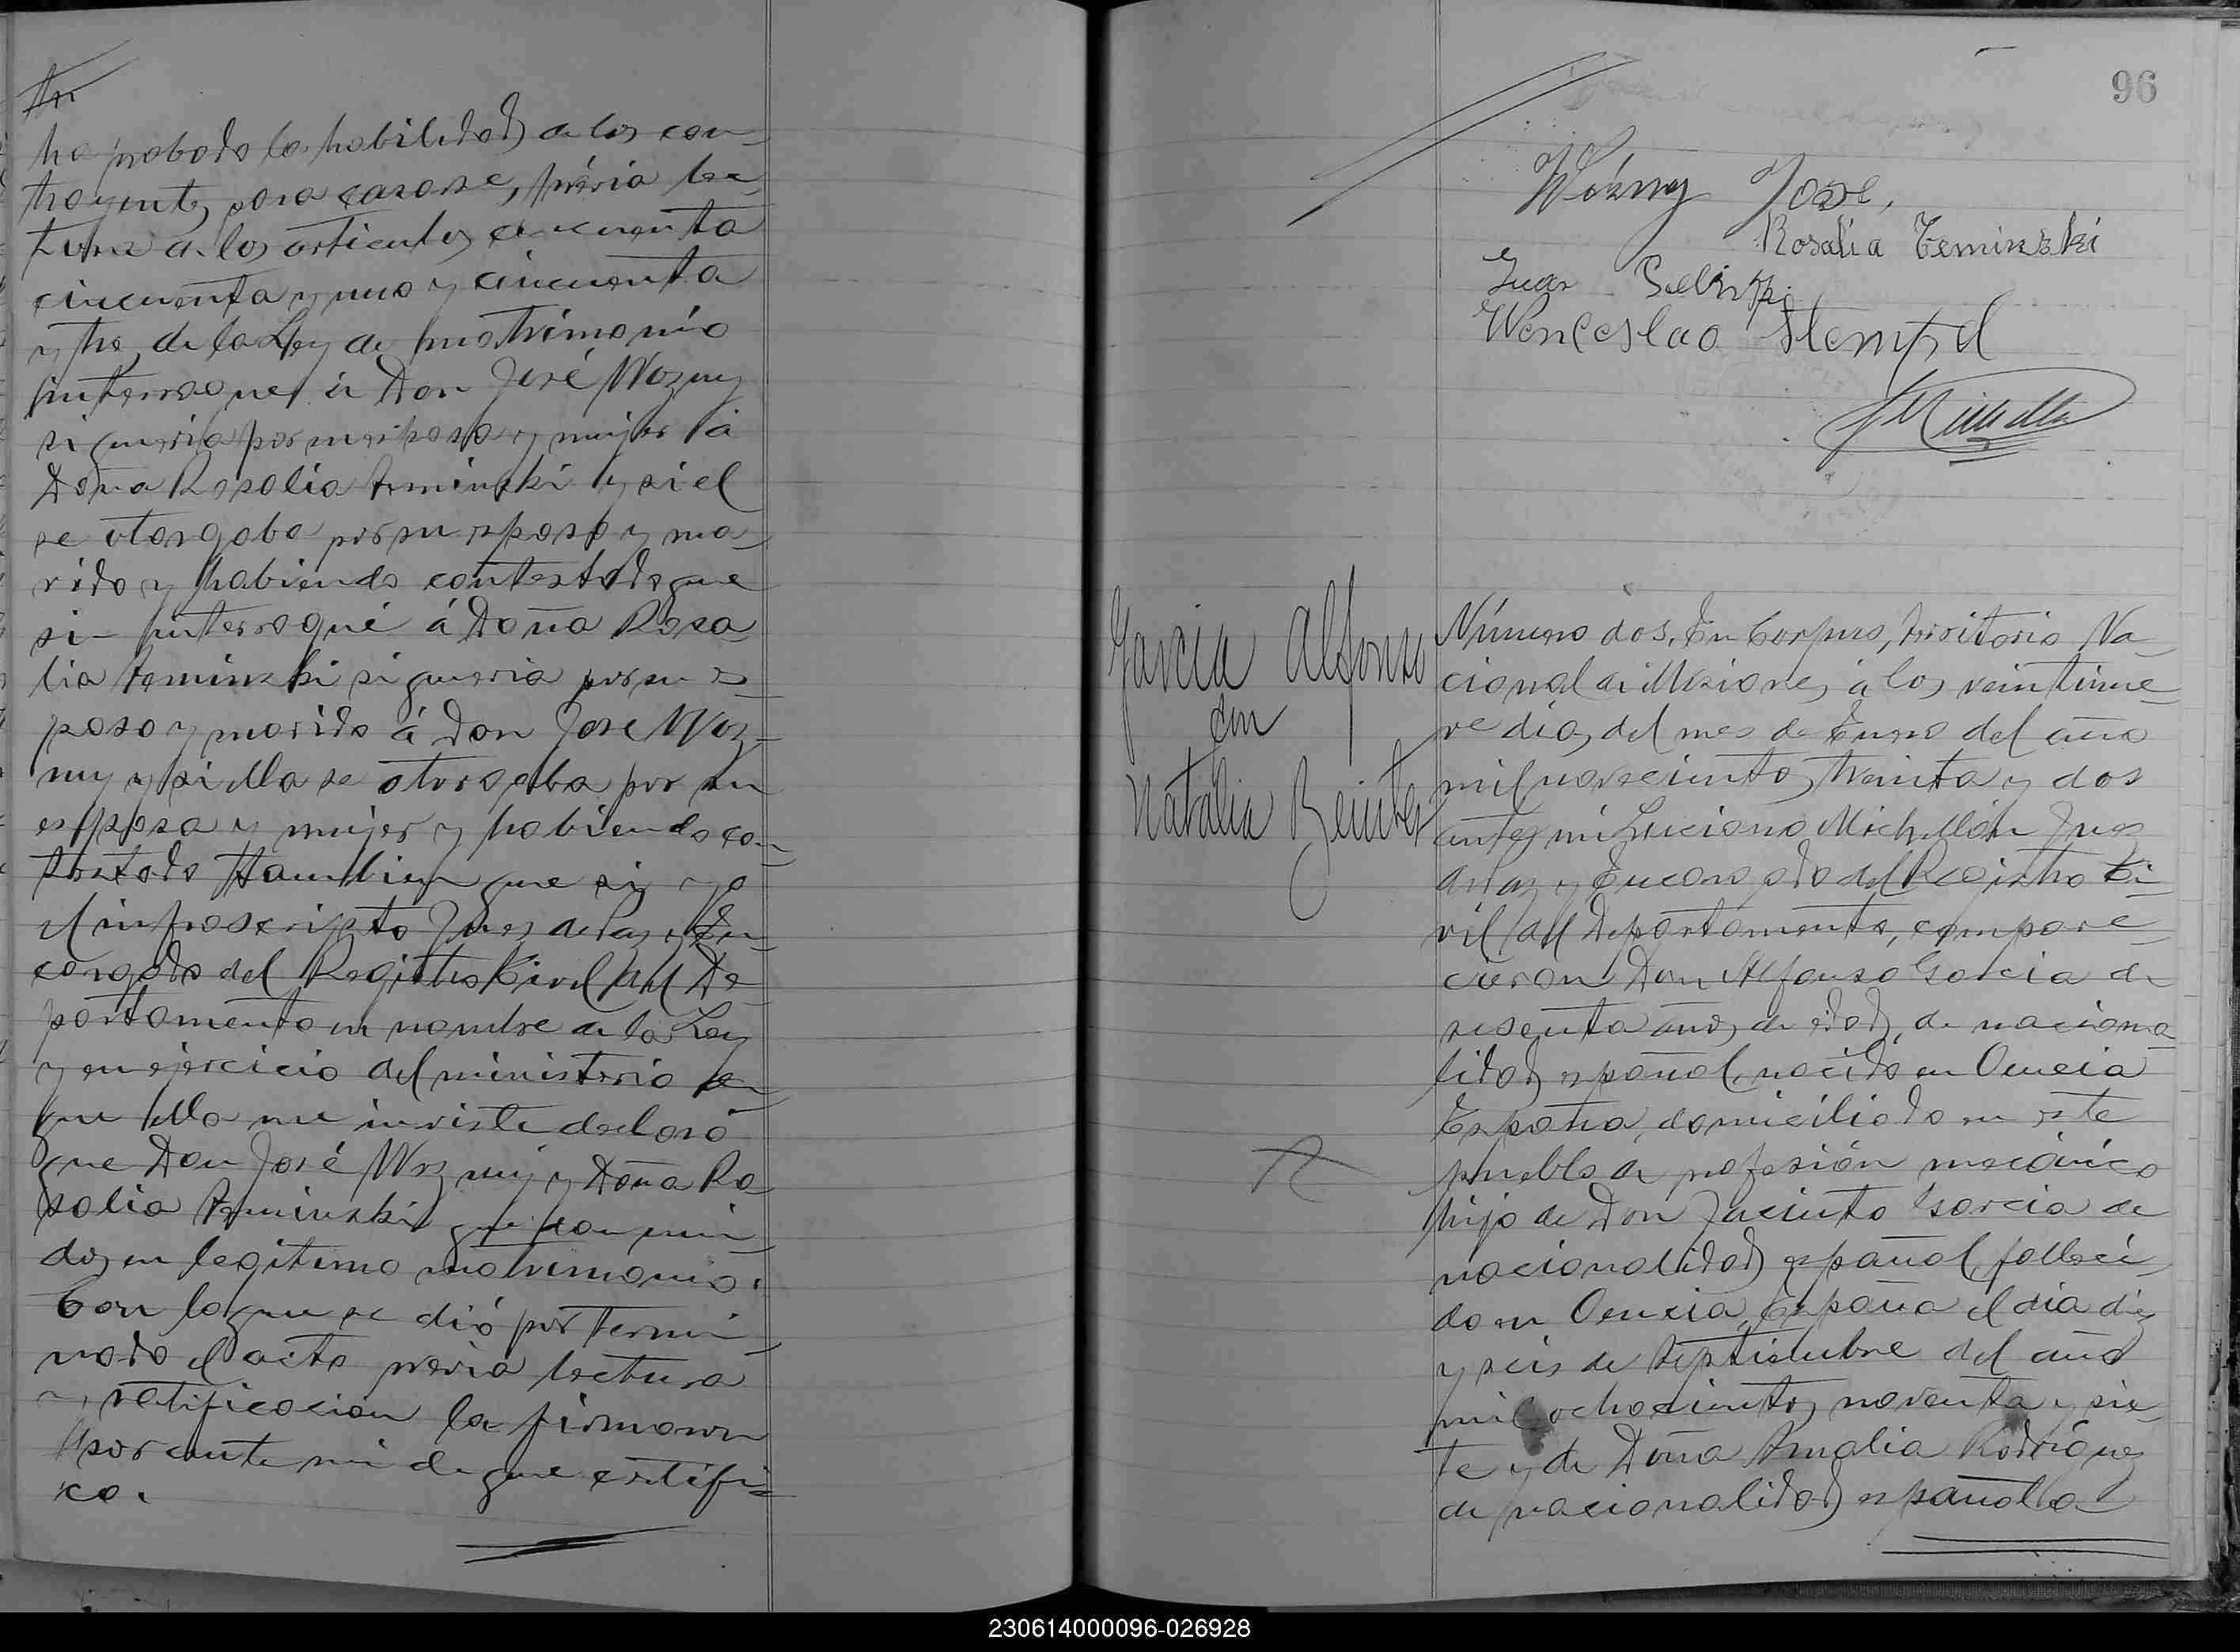 ha probado la habilidad de los con-
trayentes para casarse, prévia lec-
tura de los articulos cincuenta
cincuenta y uno y cincuenta
y tres de la Ley de matrimonio
interrogué á Don José Wozny
si queria por su esposa y mujer á
Doña Rosalia Teminski y si el
se otorgaba por su esposo y ma-
rido y habiendo contestado que
si interrogué á Doña Rosa-
lia Teminski si queria por su es-
poso y marido á Don José Woz-
ny y si ella se otorgaba por su
esposa y mujer y habiendo con-
testado tambien que si yo
el infrascripto Juez de Paz y En-
cargado del Registro Civil del De-
partamento en nombre de la Ley
y en ejercicio del ministerio
que ella me inviste declaró
que Don José Wozny y Doña Ro-
salia Teminski quedan uni-
dos en legitimo matrimonio.
Con lo que se dió por termi-
nado el acto previa lectura
y ratificacion la firmaron
por ante mi de que certifi-
co.
96
Wózny Jose,
Rosalia Teminski
Juan
Wenceslao Stempel
Garcia Alfonso
con
Natalia
Número dos. En Corpus, territorio Na-
cional de Misiones, á los veintinue-
ve dias del mes de Enero del año
mil novecientos treinta y dos
antes mi Luciano Michellón Juez
de Paz y Encargado del Registro Ci-
vil del Departamento, compare-
cieron Don Alfonso Garcia de
sesenta años de edad, de naciona-
lidad español, nacido en Oencia
España, domiciliado en este
pueblo de profesión mecánico
hijo de Don Jacinto Garcia de
nacionalidad español, falleci-
do en Oencia, España el dia diez
y seis de Septiembre del año
mil ochocientos noventa y sie-
te y de Doña Amalia Rodríguez
de nacionalidad española
230614000096-026928